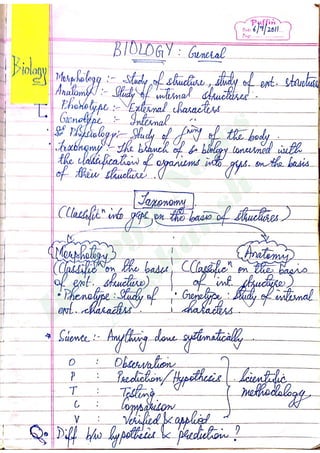 Puffin
Date 6/9/2011
Page
BIOLOGY : General
Biology
Morphology :- Study of structure, study of ext. structure
Anatomy :- Study of internal structures.
Phenotype :- External characters
Genotype :- Internal "
Physiology :- Study of func of the body.
Taxonomy :- The branch of biology concerned with
the classification of organisms into gps. on the basis
of their structure.
Taxonomy
(Classificn into gps on the basis of structures)
Morphology
Anatomy
(Classificn on the bases
(Classificn on the basis
of ext. structure)
of int. structure)
• Phenotype : Study of
• Genotype : Study of internal
ext. characters
characters.
* Science :- Anything done systematically.
O : Observation
P : Prediction/Hypothesis
Scientific
T : Testing
methodology
C : Comparison
V : Verified & applied
Q. Diff b/w hypothesis & prediction ?